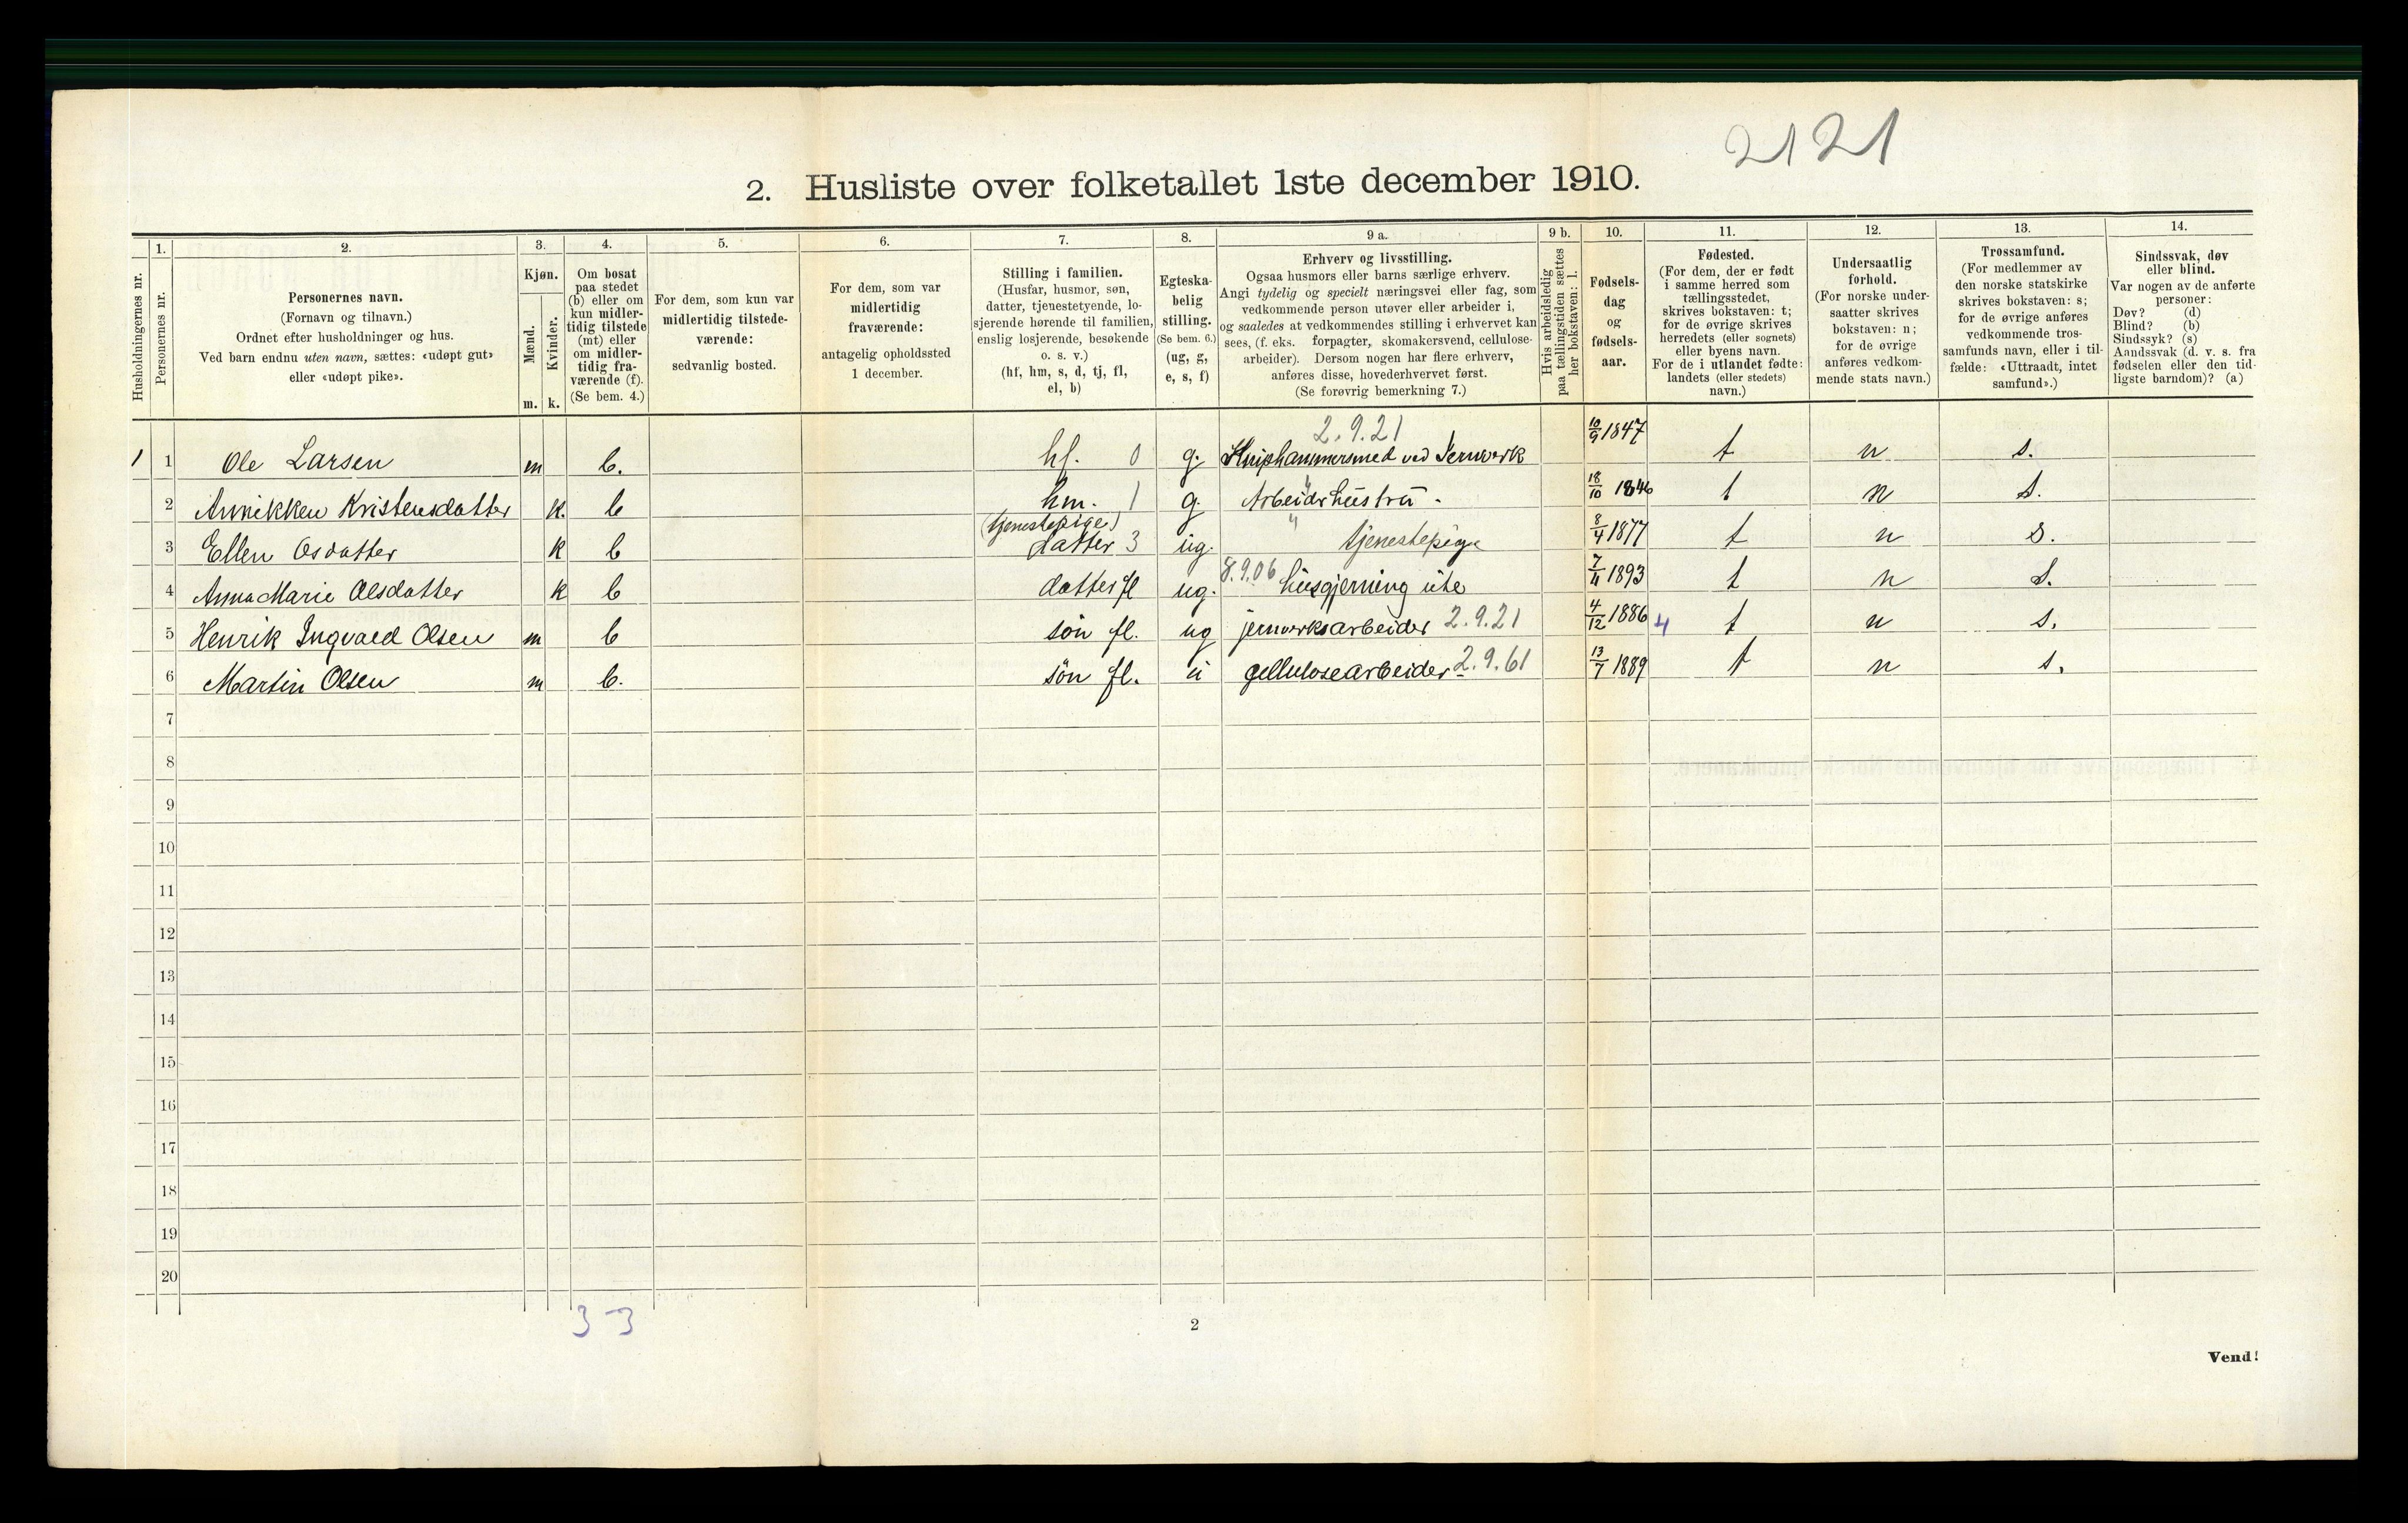 2121
2. Husliste over folketallet 1ste december 1910.
Husholdningernes nr.
1.
Personernes nr.
2.
Personernes navn.
(Fornavn og tilnavn.)
Ordnet efter husholdninger og hus.
Ved barn endnu uten navn, sættes: «udøpt gut»
eller «udøpt pike».
3.
Kjøn.
Mænd.
m.
Kvinder.
k.
4.
Om bosat
paa stedet
(b) eller om
kun midler-
tidig tilstede
(mt) eller
om midler-
tidig fra-
værende (f).
(Se bem. 4.)
5.
For dem, som kun var
midlertidig tilstede-
værende:
sedvanlig bosted.
6.
For dem, som var
midlertidig
fraværende:
antagelig opholdssted
1 december.
7.
Stilling i familien.
(Husfar, husmor, søn,
datter, tjenestetyende, lo-
sjerende hørende til familien,
enslig losjerende, besøkende
o. s. v.)
(hf, hm, s, d, tj, fl,
el, b)
8.
Egteska-
belig
stilling.
(Se bem. 6.)
(ug, g,
e, s, f)
9 a.
Erhverv og livsstilling.
Ogsaa husmors eller barns særlige erhverv.
Angi tydelig og specielt næringsvei eller fag, som
vedkommende person utøver eller arbeider i,
og saaledes at vedkommendes stilling i erhvervet kan
sees, (f. eks. forpagter, skomakersvend, cellulose-
arbeider). Dersom nogen har flere erhverv,
anføres disse, hovederhvervet først.
(Se forøvrig bemerkning 7.)
9 b.
Hvis arbeidsledig
paa tællingstiden sættes
her bokstaven: l.
10.
Fødsels-
dag
og
fødsels-
aar.
11.
Fødested.
(For dem, der er født
i samme herred som
tællingsstedet,
skrives bokstaven: t;
for de øvrige skrives
herredets (eller sognets)
eller byens navn.
For de i utlandet fødte:
landets (eller stedets)
navn.)
12.
Undersaatlig
forhold.
(For norske under-
saatter skrives
bokstaven: n;
for de øvrige
anføres vedkom-
mende stats navn.)
13.
Trossamfund.
(For medlemmer av
den norske statskirke
skrives bokstaven: s;
for de øvrige anføres
vedkommende tros-
samfunds navn, eller i til-
fælde: «Uttraadt, intet
samfund».)
14.
Sindssvak, døv
eller blind.
Var nogen av de anførte
personer:
Døv? (d)
Blind? (b)
Sindssyk? (s)
Aandssvak (d. v. s. fra
fødselen eller den tid-
ligste barndom)? (a)
2.9.21
1 1 Ole Larsen m b. hf. 0 g. Kniphammersmed ved Jernverk 10/9 1847 t n s.
2 Annikken Kristensdatter k. b hm. 1 g. Arbeiderhustru. 18/10 1846 t n s.
(tjenestepige)
3 Ellen Osdatter k b datter 3 ug. tjenestepige 8/4 1877 t n s.
4 Anna Marie Olsdatter k b datter fl ug. 8.9.06 husgjerning ute 7/4 1893 t n s.
5 Henrik Ingvald Olsen m b søn fl. ug jernverksarbeider 2.9.21 4/12 1886 4 t n s.
6 Martin Olsen m b. søn fl. u cellulosearbeider 2.9.61 13/7 1889 t n s.
7
8
9
10
11
12
13
14
15
16
17
18
19
20
3-3
2
Vend!